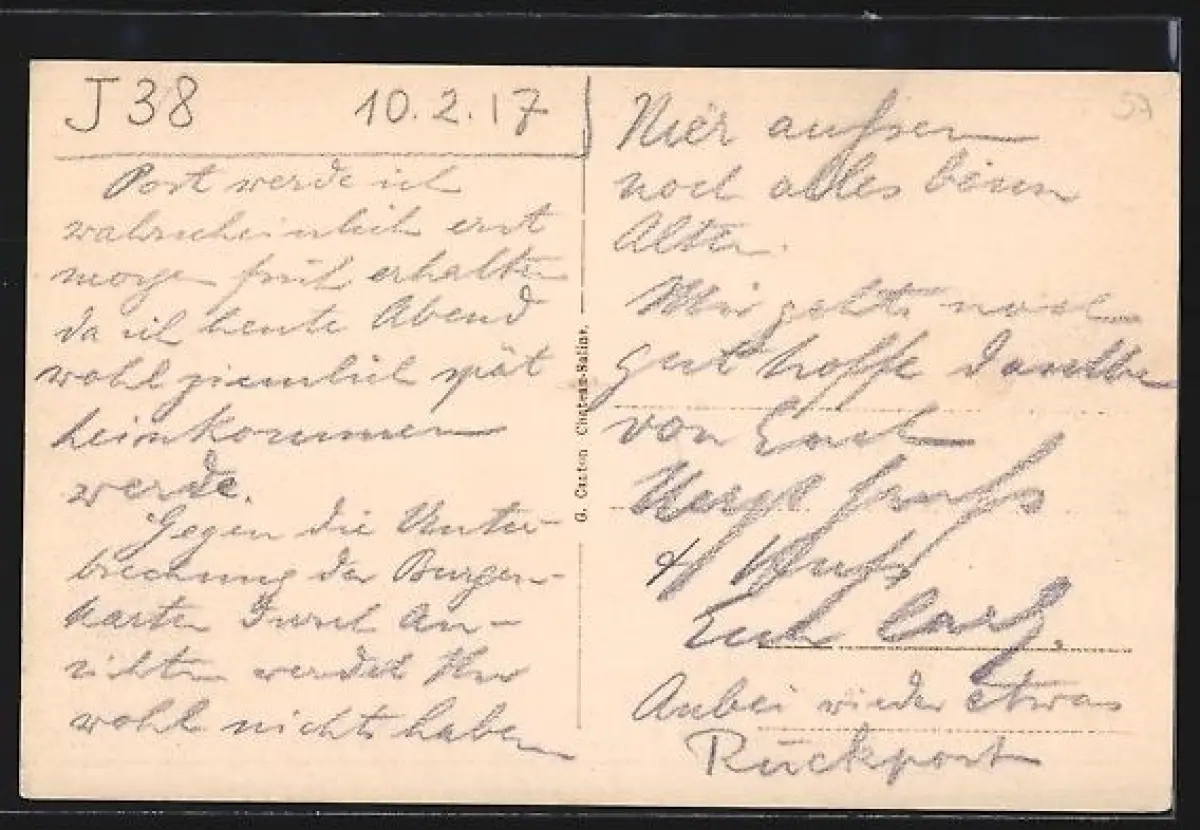 J 38 10.2.17
Post werde ich
wahrscheinlich erst
morgen früh erhalten
da ich heute Abend
wohl ziemlich spät
heimkommen
werde.
Gegen die Unter-
brechung der Burgen-
karten durch An-
sichten werdet Ihr
wohl nichts haben
G. Canton Chateau-Salins.
Hier aussen
noch alles beim
Alten.
Mir gehts noch
gut hoffe dasselbe
von Euch
Herzl Gruss
& Kuss
Euch Carl.
Anbei wieder etwas
Rückport
57